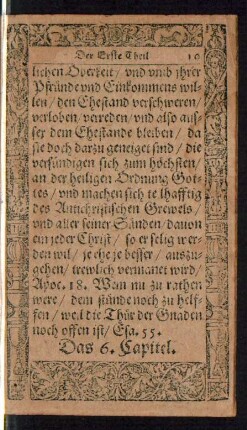 Der Erste Theil 10
lichen Oberkeit / vnd vmb jhrer
Pfründe vnd Einkommens wil-
len / den Ehestand verschweren /
verloben / verreden / vnd also aus-
ser dem Ehestande bleiben / da
sie doch darzu geneiget sind / die
versündigen sich zum höchsten /
an der heiligen Ordnung Got-
tes / vnd machen sich teilhafftig
des Antichristischen Grewels /
vnd aller seiner Sünden / dauon
ein jeder Christ / so er selig wer-
den wil / je ehe je besser / auszu-
gehen / trewlich vermanet wird /
Apoc. 18. Wem nu zu rathen
were / dem stünde noch zu helf-
fen / weil die Thür der Gnaden
noch offen ist / Esa. 55.
Das 6. Capitel.